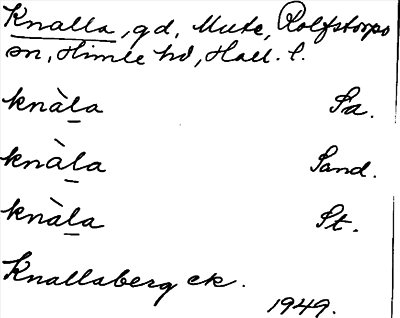 Knalla, gd, Mute, Rolfstorps
sn, Himle hd, Hall. l.
knàḻa Sa.
knàḻa Sand.
knàḻa St.
Knallaberg ek.
1949.